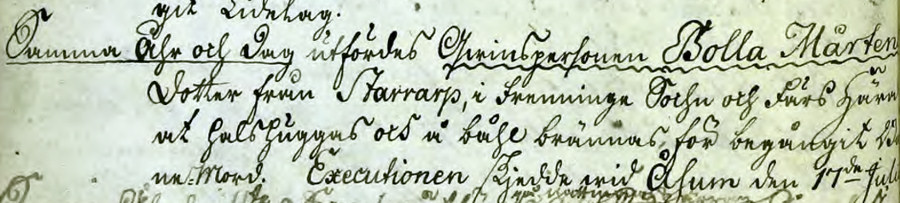 git Lidelag.
Samma Åhr och Dag utfördes Qwinspersonen Bolla Mårten
Dotter från Starrarp, i Frenninge Sochn och Färs Hära
at halshuggas och å båhl brännas för begångit
ne-Mord. Executionen skjedde wid Åsum den 17de Juli